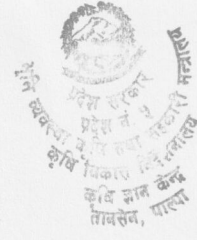 प्रदेश सरकार
प्रदेश नं. ५
व्यवस्था कृषि तथा सहकारी मन्त्रालय
कृषि विकास निर्देशनालय
कृषि ज्ञान केन्द्र
तानसेन, पाल्पा